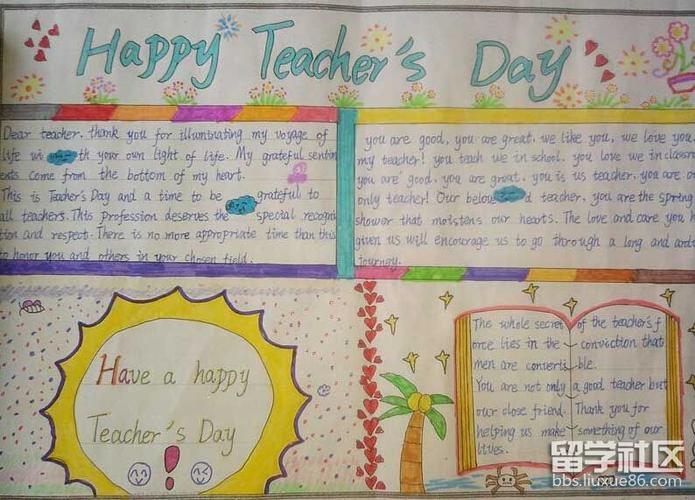 Happy Teacher's Day
Dear teacher, thank you for illuminating my voyage of
life wi th your own light of life. My grateful sentim
ents come from the bottom of my heart.
This is Teacher's Day and a time to be grateful to
all teachers. This profession deserves the special recogni
tion and respect. There is no more appropriate time than this
to honor you and others in your chosen field.
you are good, you are great, we like you, we love you,
my teacher! you teach we in school, you love we in classroom
you are good, you are great, you is us teacher, you are our
only teacher! Our belov d teacher, you are the spring
shower that moistens our hearts. The love and care you h
given us will encourage us to go through a long and
journey.
Have a happy
Teacher's Day
!
The whole secret of the teacher's f
orce lies in the conviction that
men are converti ble.
You are not only a good teacher but
our close friend. Thank you for
helping us make something of our
lives.
留学社区
bbs.liuxue86.com